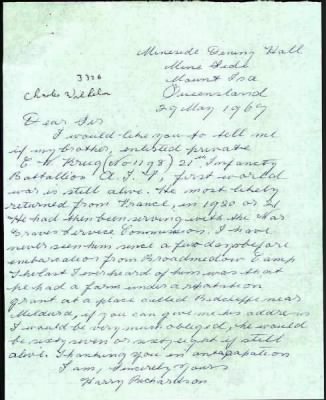 Mineside Dining Hall
Mine Side
Mount Isa
Queensland
29 May 1967
3326
Charles Wilhelm
Dear Sir
I would like you to tell me
if my brother, enlisted private
C W Krug (No 1198) 21st Infantry
Battallion A.I.F, first world
war is still alive. He most likely
returned from France, in 1920 or 21
He had then been serving with the War
Graves Service Commission. I have
never seen him since a few days before
embarcation from Broadmeadow Camp
The last I ever heard of him was that
he had a farm under
grant at a place called Redcliffe near
Mildura, if you can give me his address
I would be very much obliged, he would
be sixty seven or sixty eight if still
alive. Thanking you in antacapation
I am, Sincerely Yours
Harry Richardson